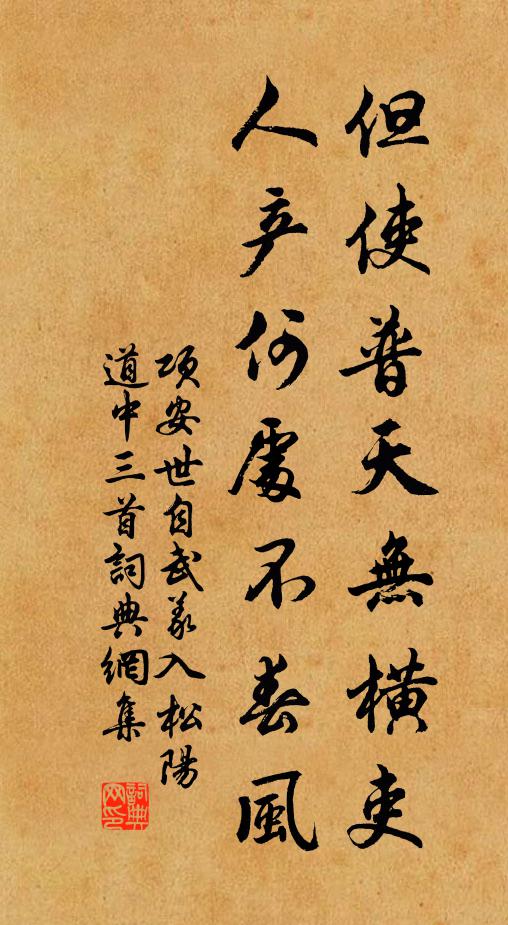 但使普天無横吏
人产何處不春風
項安世自武義入松陽
道中三首詞典網集
詞典
网印